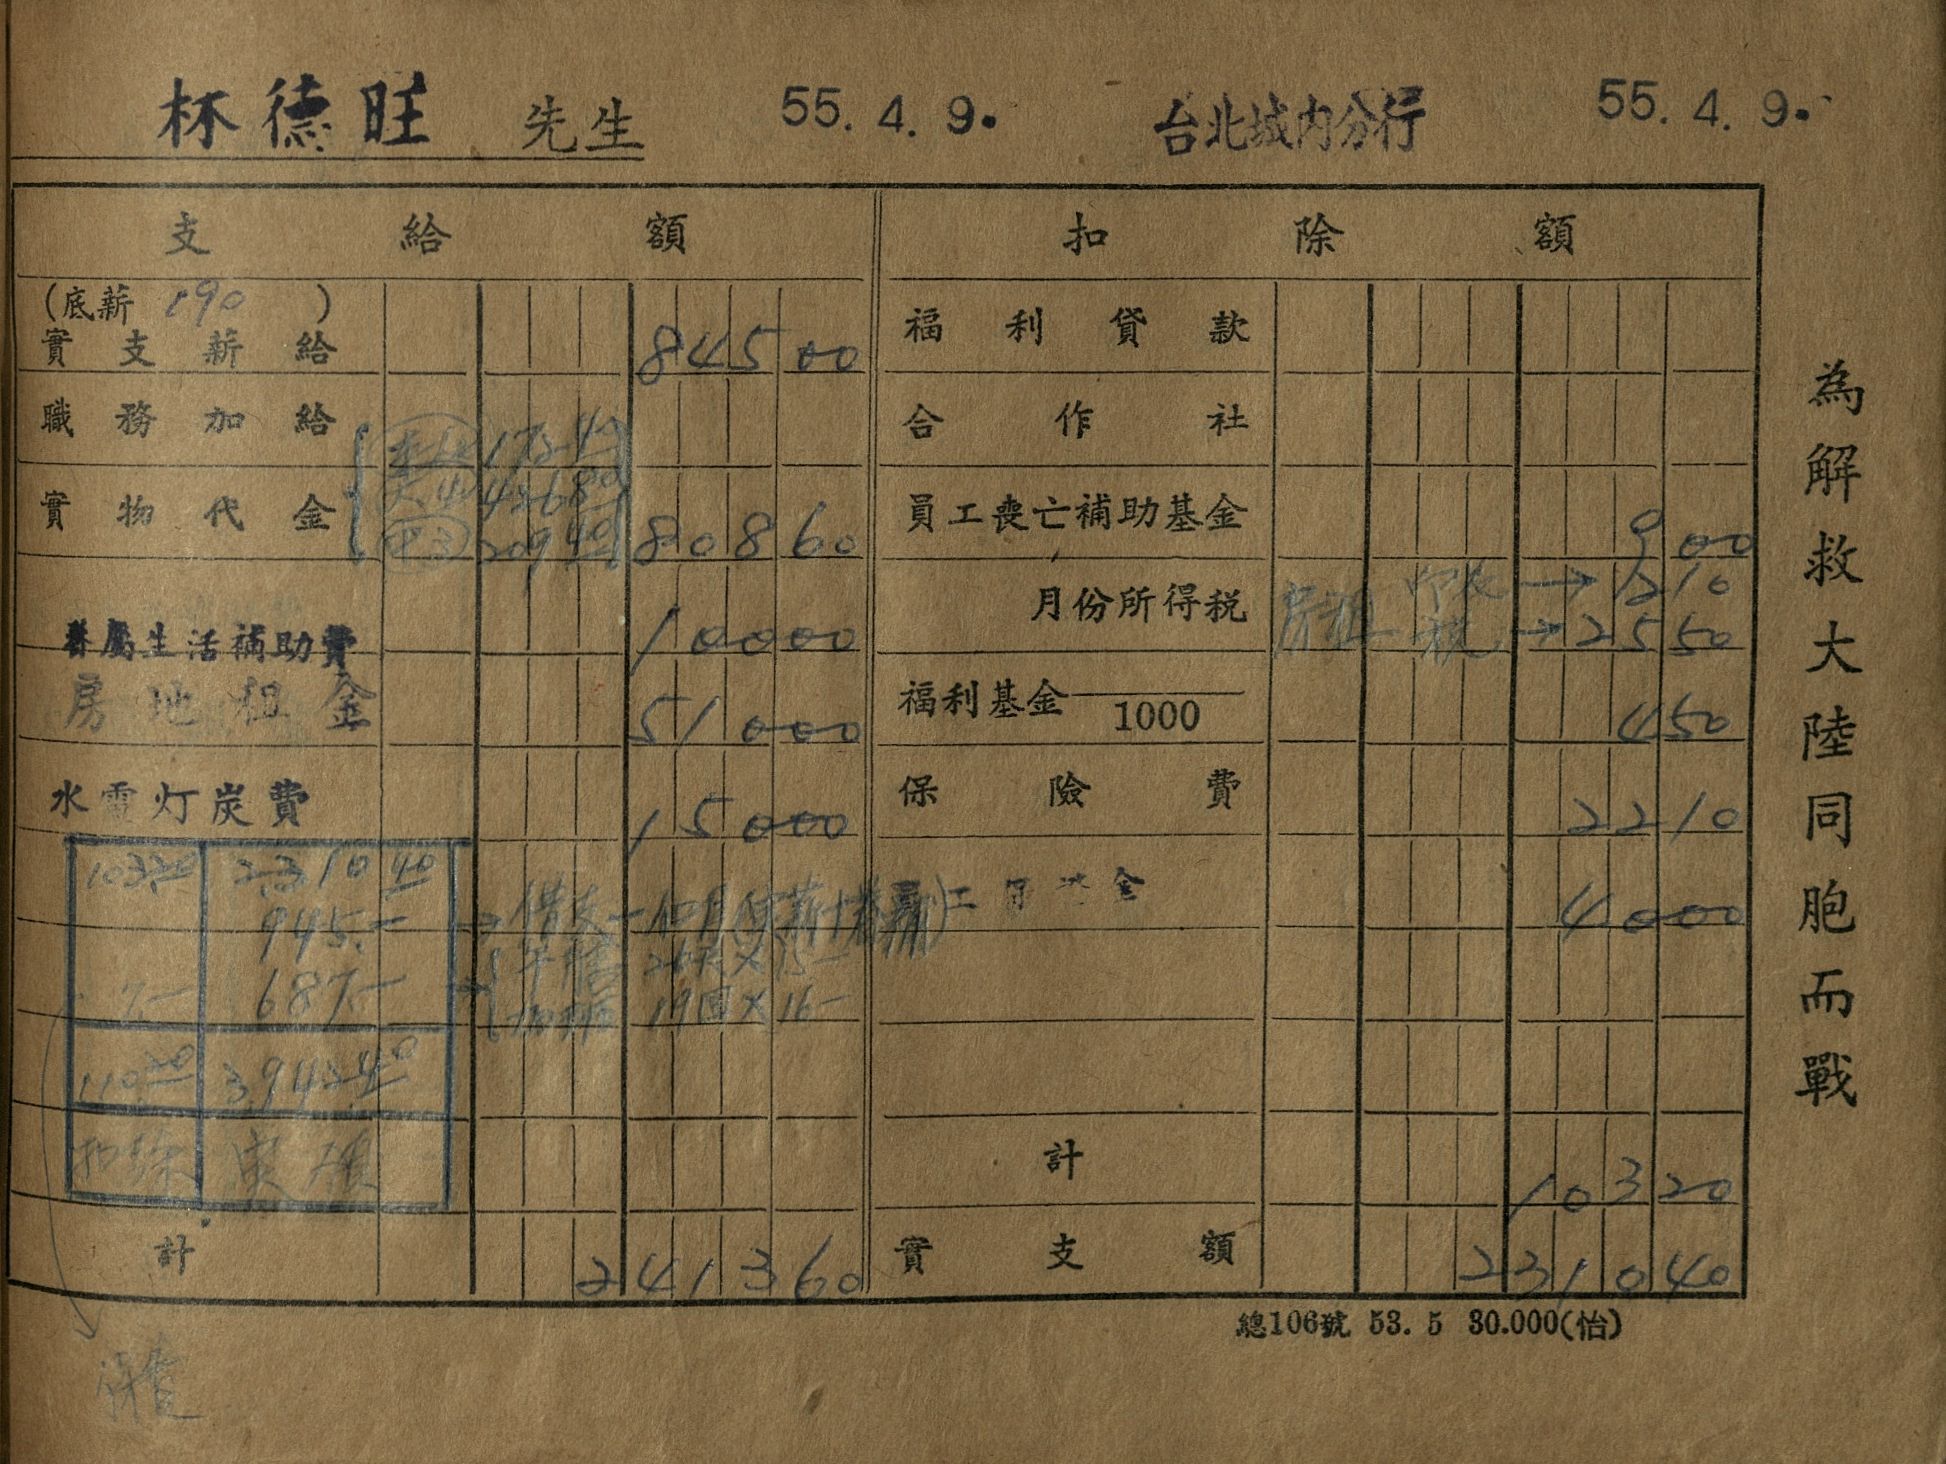 林德旺 先生 55. 4. 9. 台北城內分行 55. 4. 9.
支給額
(底薪 190 )
實支薪給 845 00
職務加給
實物代金 808 60
172 40
426 80
209 40
眷屬生活補助費 100 00
房地租金 510 00
水電灯炭費 150 00
103.20 2,310 40
945.-
7.- 687.-
110 20 3,942 40
扣除 實領
借支
午膳 26天×15-
加班 19回×16-
計 2413 60
扣除額
福利貸款
合作社
員工喪亡補助基金 9 00
月份所得税 房租 印花→ 2 10
税→ 25 50
福利基金 1000 4 50
保險費 22 10
工 金 40 00
計 103 20
實支額 2310 40
總106號 53. 5 30.000(怡)
為解救大陸同胞而戰